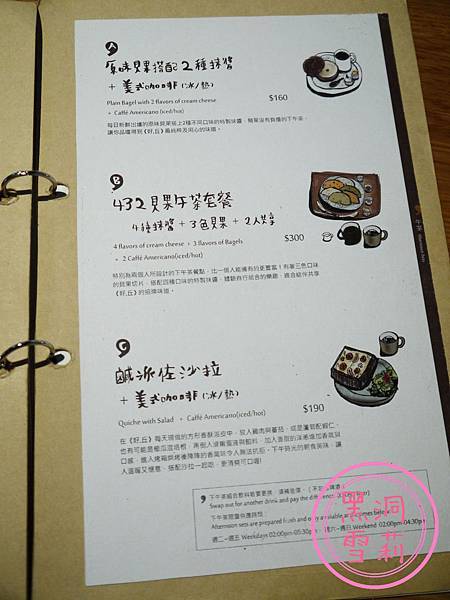 A
原味貝果搭配2種抹醬
+ 美式咖啡(冰/熱)
Plain Bagel with 2 flavors of cream cheese
+ Caffé Americano (iced/hot)
$160
每日新鮮出爐的原味貝果搭上2種不同口味的特製抹醬,簡單沒有負擔的下午茶,
讓你品嚐得到《好,丘》最純粹及用心的味道。
B
432貝果午茶套餐
4種抹醬+3色貝果+2人共享
4 flavors of cream cheese + 3 flavors of Bagels
+ 2 Caffé Americano(iced/hot)
$300
特別為兩個人所設計的下午茶餐點,比一個人能擁有的更豐富!有著三色口味
的貝果切片,搭配四種口味的特製抹醬,體驗自行組合的樂趣,適合結伴共享
《好,丘》的招牌味道。
C
鹹派佐沙拉
+ 美式咖啡(冰/熱)
Quiche with Salad + Caffé Americano(iced/hot)
$190
在《好,丘》每天現做的方形香酥派皮中,放入雞肉與蕃茄,或是蘆筍配蝦仁,
口感,進入烤箱烘烤後陣陣的香氣叫令人無法抗拒,下午時光的輕食美味,讓
人溫暖又愜意,搭配沙拉一起吃,更清爽可口喔!
下午茶組合飲料若需更換,須補差價。
Swap out for another drink and pay the difference
下午茶限量供應時段:
Afternoon sets are prepared fresh and only available at set times below
週一~週五 Weekdays 02:00pm-05:30pm 週六~週日 Weekend 02:00pm-04:30pm
黑洞
雪莉